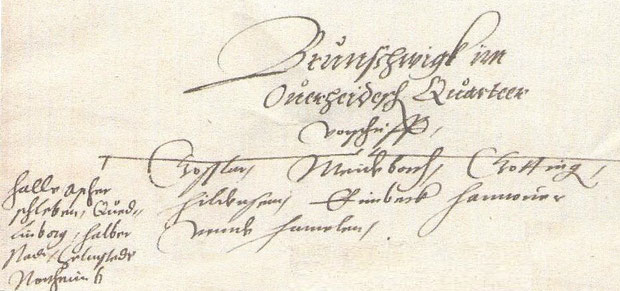 Brunschwigk im
Ouerheidesch Quarteer
vorschrifft,
Gosslar, Meideborch, Gotting,
hildensem, Eimbeck hannouer
vnnd hamelen,
Halle Ascher
schleben, Qued-
linborg, halber
stadt, Helmstede
Northeim